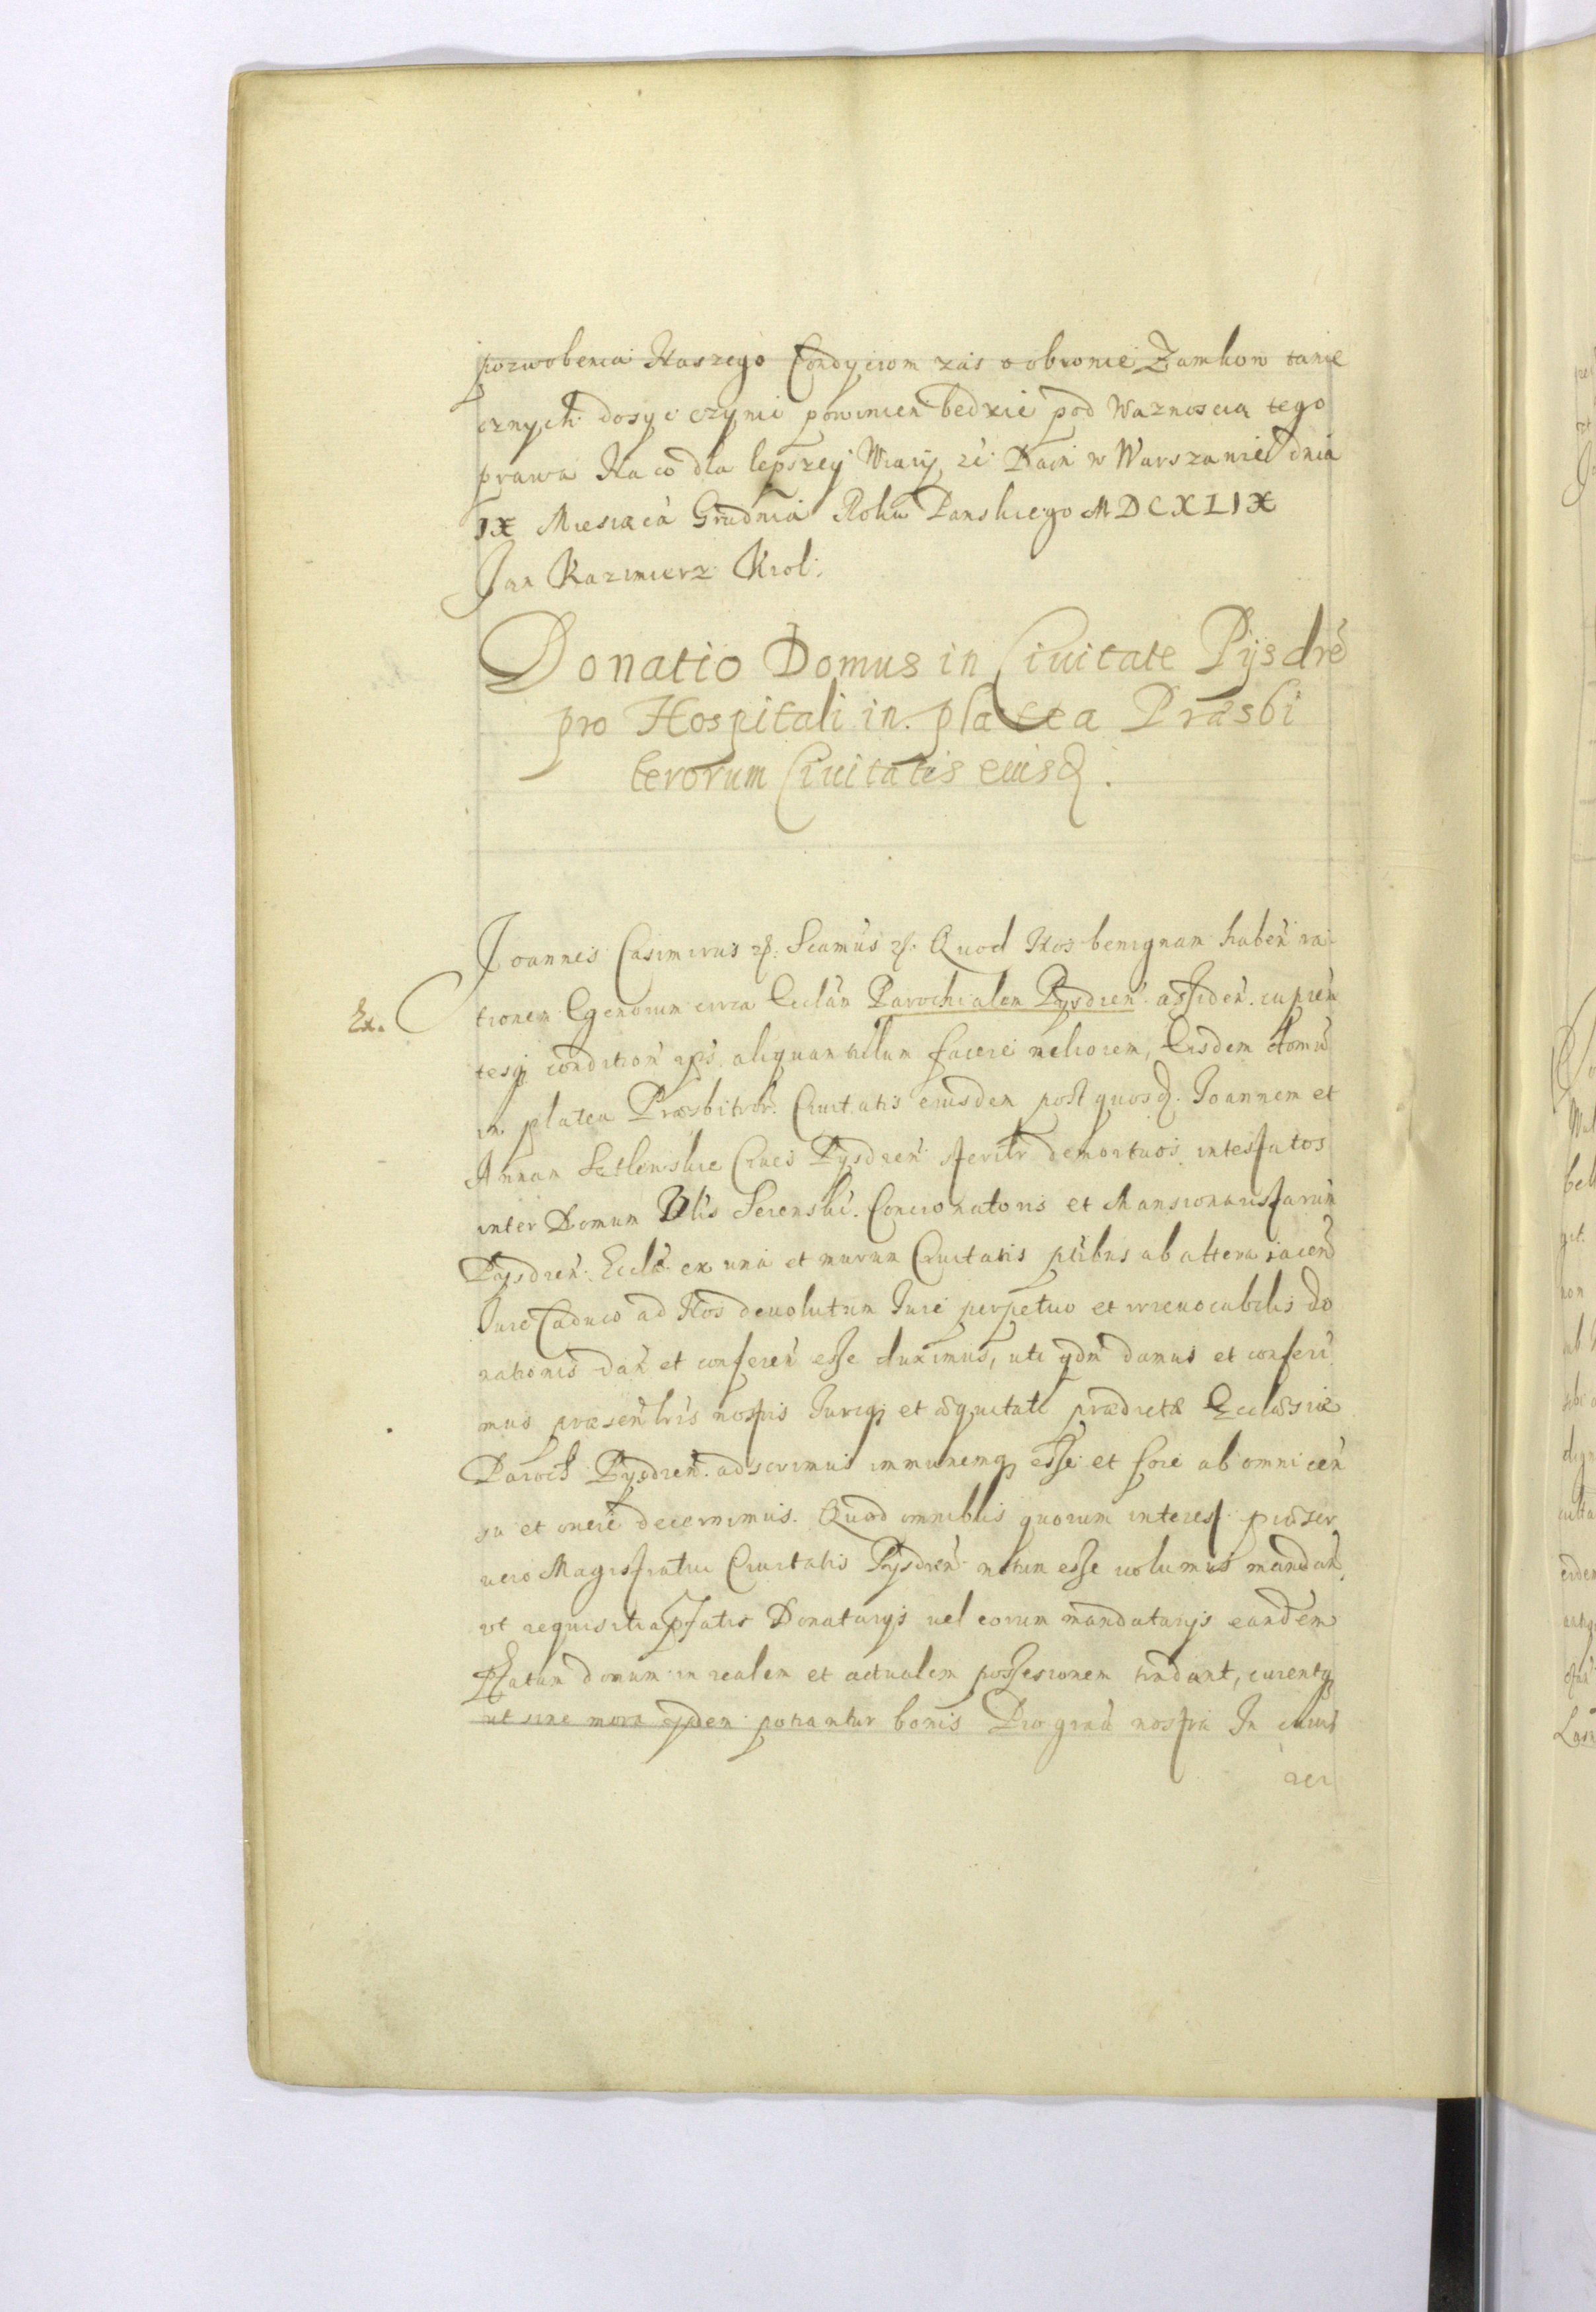 pozwolenia Naszego Condyciom zas o obronie Zamkow tame
cznych dosyc czynic powinien bedzie pod Waznoscią tego
prawa Na co dla lepszey Wiary, &c Dan w Warszawie dnia
IX Miesiaca Grudnia Roku Panskiego MDCXLIX
Jan Kazimierz Krol.
Donatio Domus in Ciuitate Pysdrẽ
pro Hospitali in platea Præsbi
terorum Ciuitatis eiusd.
Joannes Casimirus &. Seamus &. Quod Nos benignam haben̄ ra
Ex. tionem Egenorum circa Ecclãm Parochialem Pysdren̄ assiden̄. cupien
tesq condition̄ aliquantulum facere meliorem, Eisdem domũ
in platea Præsbiteror. Ciuitatis eiusdem post quosd. Joannem et
Annam Ciues Pysdren̄ sterilr demortuos intestatos
inter Domum Concionatoris et Mansionaristarum
Pysdren̄. Ecclæ ex una et murum Ciuitatis ptibus ab altera iacen̄
Jure Caduco ad Nos deuolutum Jure perpetuo et irreuocabilis do
nationis dan̄ et conferen̄ esse duximus, uti qdm damus et conferi
mus præsen̄ lris nostris Juriq et æquitati prædictæ Ecclæsiæ
Paroch Pysdren̄. adscrimus immunemq esse et fore ab omni cen̄
su et onere decernimus. Quod omnibus quorum interest præser
uero Magistratui Ciuitatis Pysdren̄ notum esse uolumus mandan̄.
ut requisiti a pfatis Donatarys uel eorum mandatarys eandem
pfatam domum in realem et actualem possesionem tradant, curentq
ut sine mora ejsdem potiantur bonis Pro gra nostra In cuius
rei